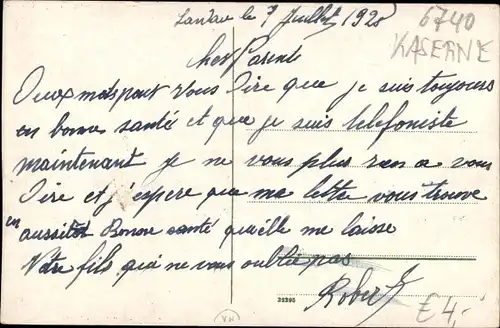 Landau le 9 Juillet 1920
6740
KASERNE
Cher Parents
Deux mots pour vous dire que je suis toujours
en bonne santé et que je suis telefoniste
maintenant je ne vous plus rien a vous
dire et j'espere que ma lettre vous trouve
en aussitot Bonne santé qu'elle me laisse
Votre fils qui ne vous oublie pas
Robert
35395
VH
€ 4,-